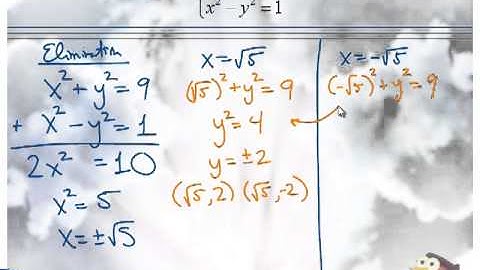 x² − y² = 1
Elimination
x² + y² = 9
+ x² − y² = 1
2x² = 10
x² = 5
x = ±√5
x = √5
(√5)² + y² = 9
y² = 4
y = ±2
(√5, 2) (√5, -2)
x = -√5
(-√5)² + y² = 9